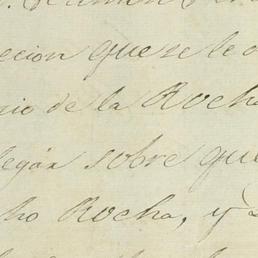 ecion que se le
nio de la Rocha
legan sobre que
ho Rocha, y